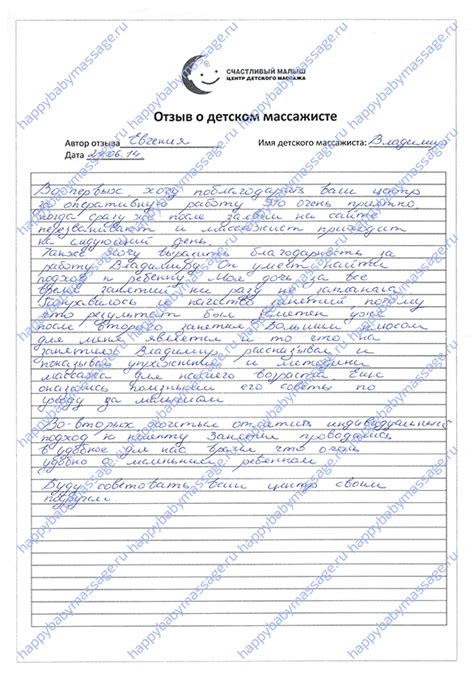 СЧАСТЛИВЫЙ МАЛЫШ
ЦЕНТР ДЕТСКОГО МАССАЖА
Отзыв о детском массажисте
Автор отзыва Евгения Имя детского массажиста: Владимир
Дата 27.06.14.
Во первых, хочу поблагодарить ваш центр
за оперативную работу Это очень приятно
когда сразу же после заявки на сайте
перезванивают и массажист приходит
на следующий день.
Также хочу выразить благодарность за
работу Владимиру Он умеет найти
подход к ребенку Моя дочь за все
время занятий ни разу не заплакала
Понравилось и качество занятий потому
что результат был заметен уже
после второго занятия Большим плюсом
для меня является и то что на
занятиях Владимир рассказывал и
показывал упражнения и методики
массажа для нашего возраста Еще
оказались полезными его советы по
уходу за малышом
Во-вторых хочется отметить индивидуальный
подход к клиенту Занятия проводились
в удобное для нас время что очень
удобно с маленьким ребенком
Буду советовать ваш центр своим
подругам
happybabymassage.ru